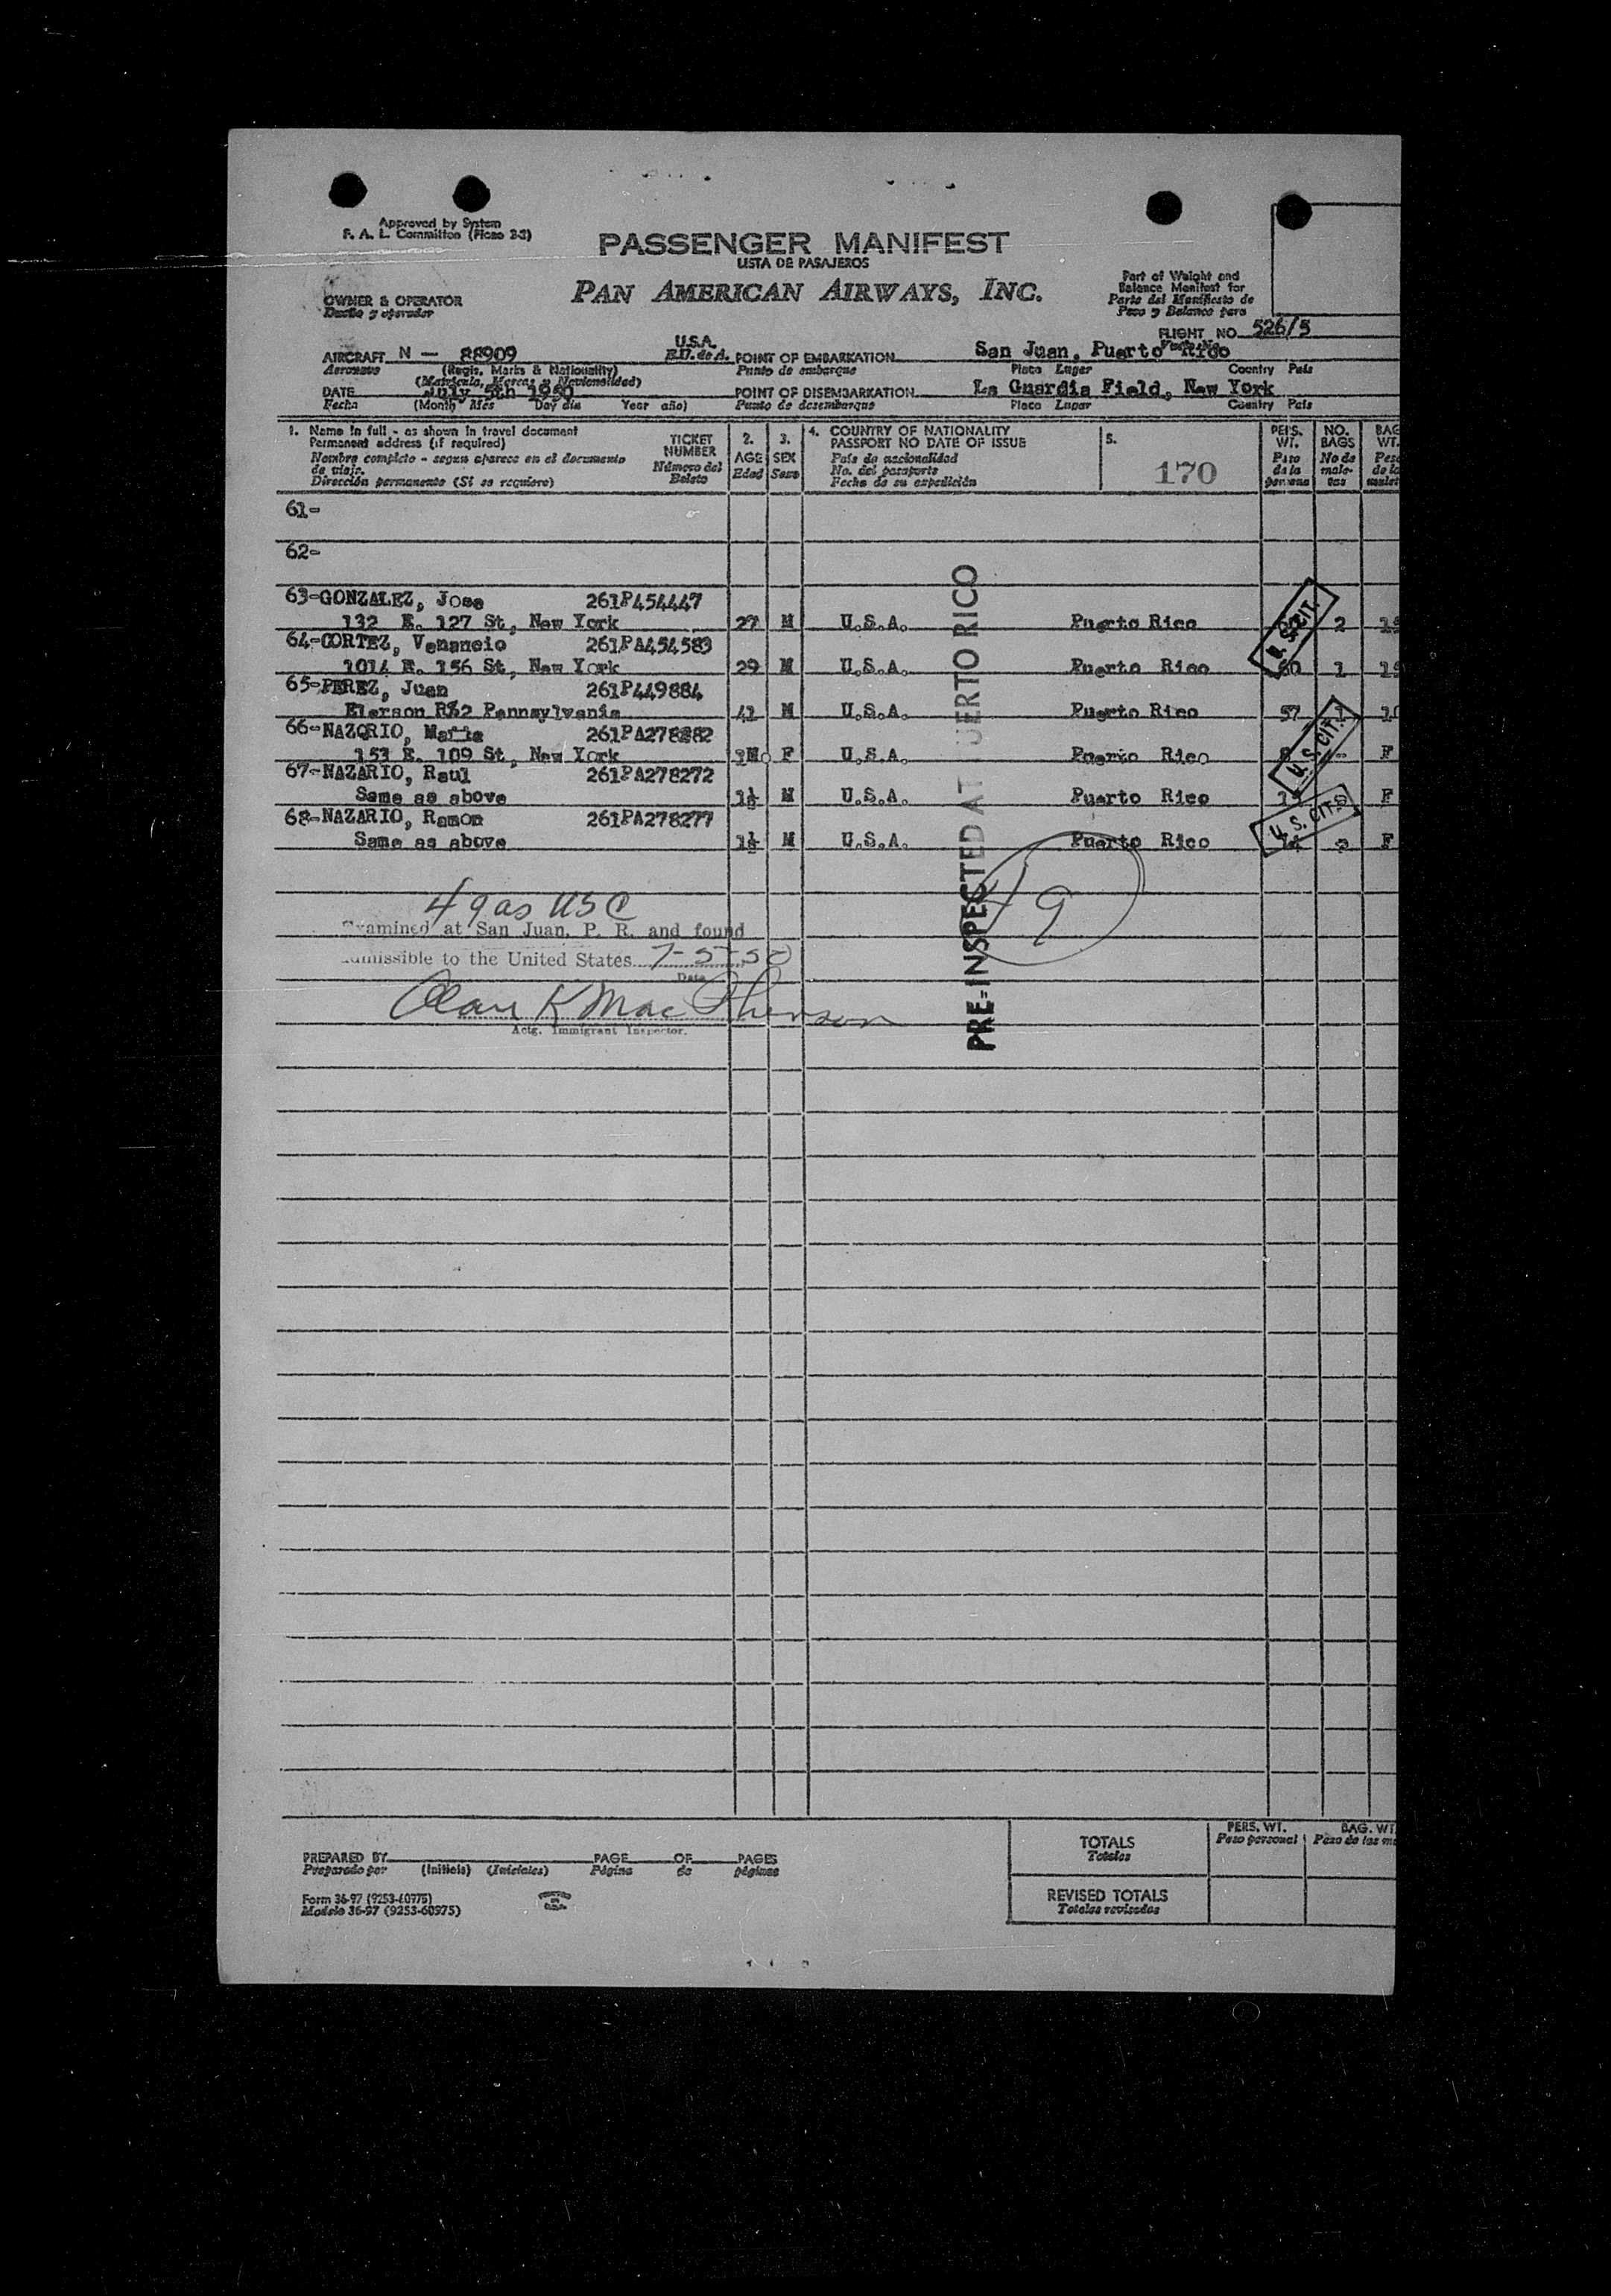 Approved by System
F. A. L. Committee (Ficao 2-3)
PASSENGER MANIFEST
LISTA DE PASAJEROS
PAN AMERICAN AIRWAYS, INC.
Part of Weight and
Balance Manifest for
Parte del Manifiesto de
Peso y Balance para
OWNER & OPERATOR
Dueño y operador
FLIGHT NO. 526/5
Vuelo No.
AIRCRAFT N — 88909 U.S.A. POINT OF EMBARKATION San Juan, Puerto Rico
Aeronave (Regis. Marks & Nationality) E.U. de A. Punto de embarque Place Lugar Country País
(Matrícula, Marcas y Nacionalidad)
DATE July 5th 1950 POINT OF DISEMBARKATION La Guardia Field, New York
Fecha (Month Mes Day día Year año) Punto de desembarque Place Lugar Country País
1. Name in full - as shown in travel document
Permanent address (if required)
Nombre completo - segun aparece en el documento
de viaje.
Dirección permanente (Si se requiere)
TICKET
NUMBER
Número del
Boleto
2.
AGE
Edad
3.
SEX
Sexo
4. COUNTRY OF NATIONALITY
PASSPORT NO DATE OF ISSUE
País de nacionalidad
No. del pasaporte
Fecha de su expedición
5.
170
PERS.
WT.
Peso
de la
persona
NO.
BAGS
No de
male-
tas
BAG
WT.
Peso
de la
malet
61-
62-
63-GONZALEZ, Jose 261P454447
132 E. 127 St, New York 27 M U.S.A. Puerto Rico 2
64-CORTEZ, Venancio 261PA454583
1014 E. 156 St, New York 29 M U.S.A. Puerto Rico 60 1
65-PEREZ, Juan 261P449884
Elerson R#2 Pennsylvania 41 M U.S.A. Puerto Rico 57
66-NAZORIO, Maria 261PA278282
153 E. 109 St, New York 3M F U.S.A. Puerto Rico 8 - F
67-NAZARIO, Raul 261PA278272
Same as above 1½ M U.S.A. Puerto Rico F
68-NAZARIO, Ramon 261PA278277
Same as above 1½ M U.S.A. Puerto Rico F
U. S. CIT.
U. S. CIT.
U. S. CIT.
PRE-INSPECTED AT PUERTO RICO
49
49 as USC
Examined at San Juan, P. R. and found
admissible to the United States 7-5-50
Date
Alan K MacPherson
Actg. Immigrant Inspector.
PREPARED BY PAGE OF PAGES
Preparado por (Initials) (Iniciales) Página de páginas
Form 36-97 (9253-60975)
Modelo 36-97 (9253-60975)
TOTALS
Totales
PERS. WT.
Peso personal
BAG. WT.
Peso de las ma
REVISED TOTALS
Totales revisados